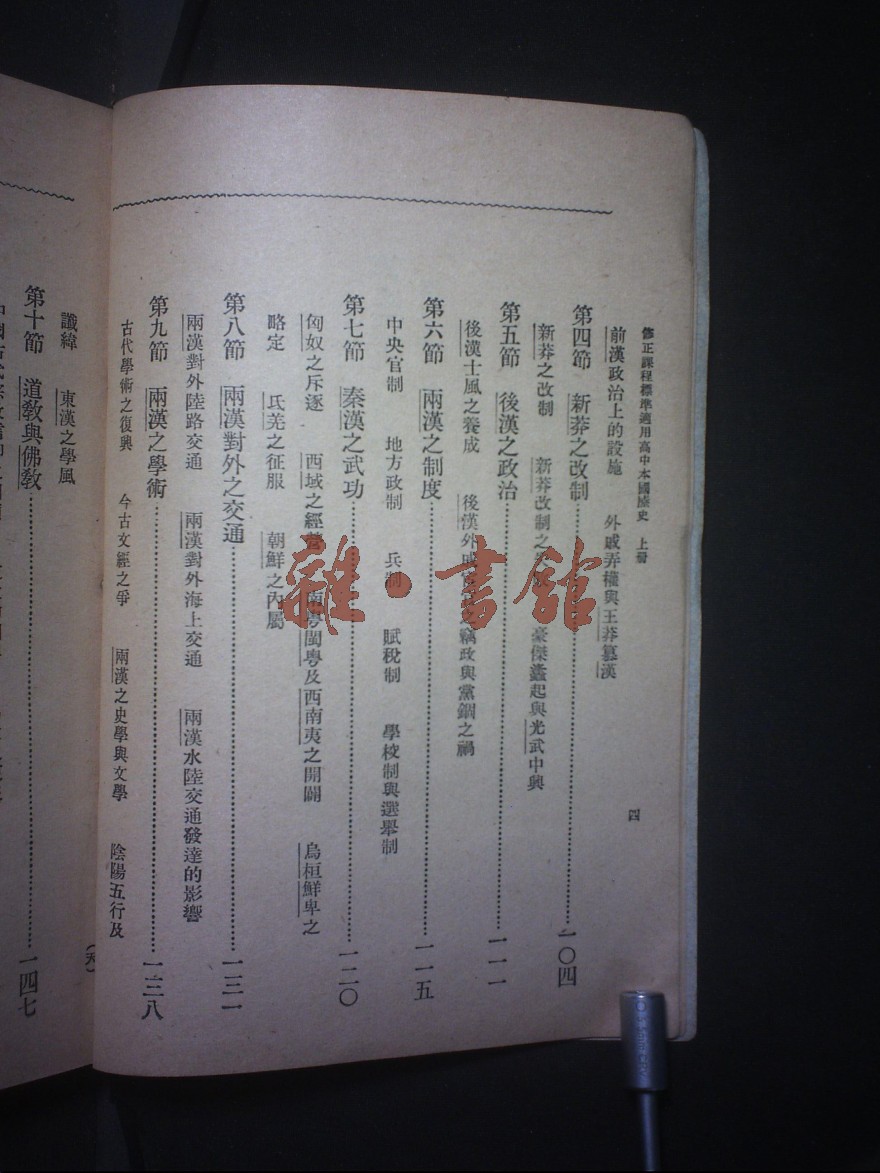 修正課程標準適用高中本國歷史　上冊
四
前漢政治上的設施　外戚弄權與王莽篡漢
第四節　新莽之改制…………一〇四
新莽之改制　新莽改制之　豪傑蠭起與光武中興
第五節　後漢之政治…………一一一
後漢士風之養成　後漢外戚　之竊政與黨錮之禍
第六節　兩漢之制度…………一一五
中央官制　地方政制　兵制　賦稅制　學校制與選舉制
第七節　秦漢之武功…………一二〇
匈奴之斥逐　西域之經營　南粵閩粵及西南夷之開闢　烏桓鮮卑之
略定　氐羌之征服　朝鮮之內屬
第八節　兩漢對外之交通…………一三一
兩漢對外陸路交通　兩漢對外海上交通　兩漢水陸交通發達的影響
第九節　兩漢之學術…………一三八
古代學術之復興　今古文經之爭　兩漢之史學與文學　陰陽五行及
讖緯　東漢之學風
第十節　道教與佛教…………一四七
雜·書館